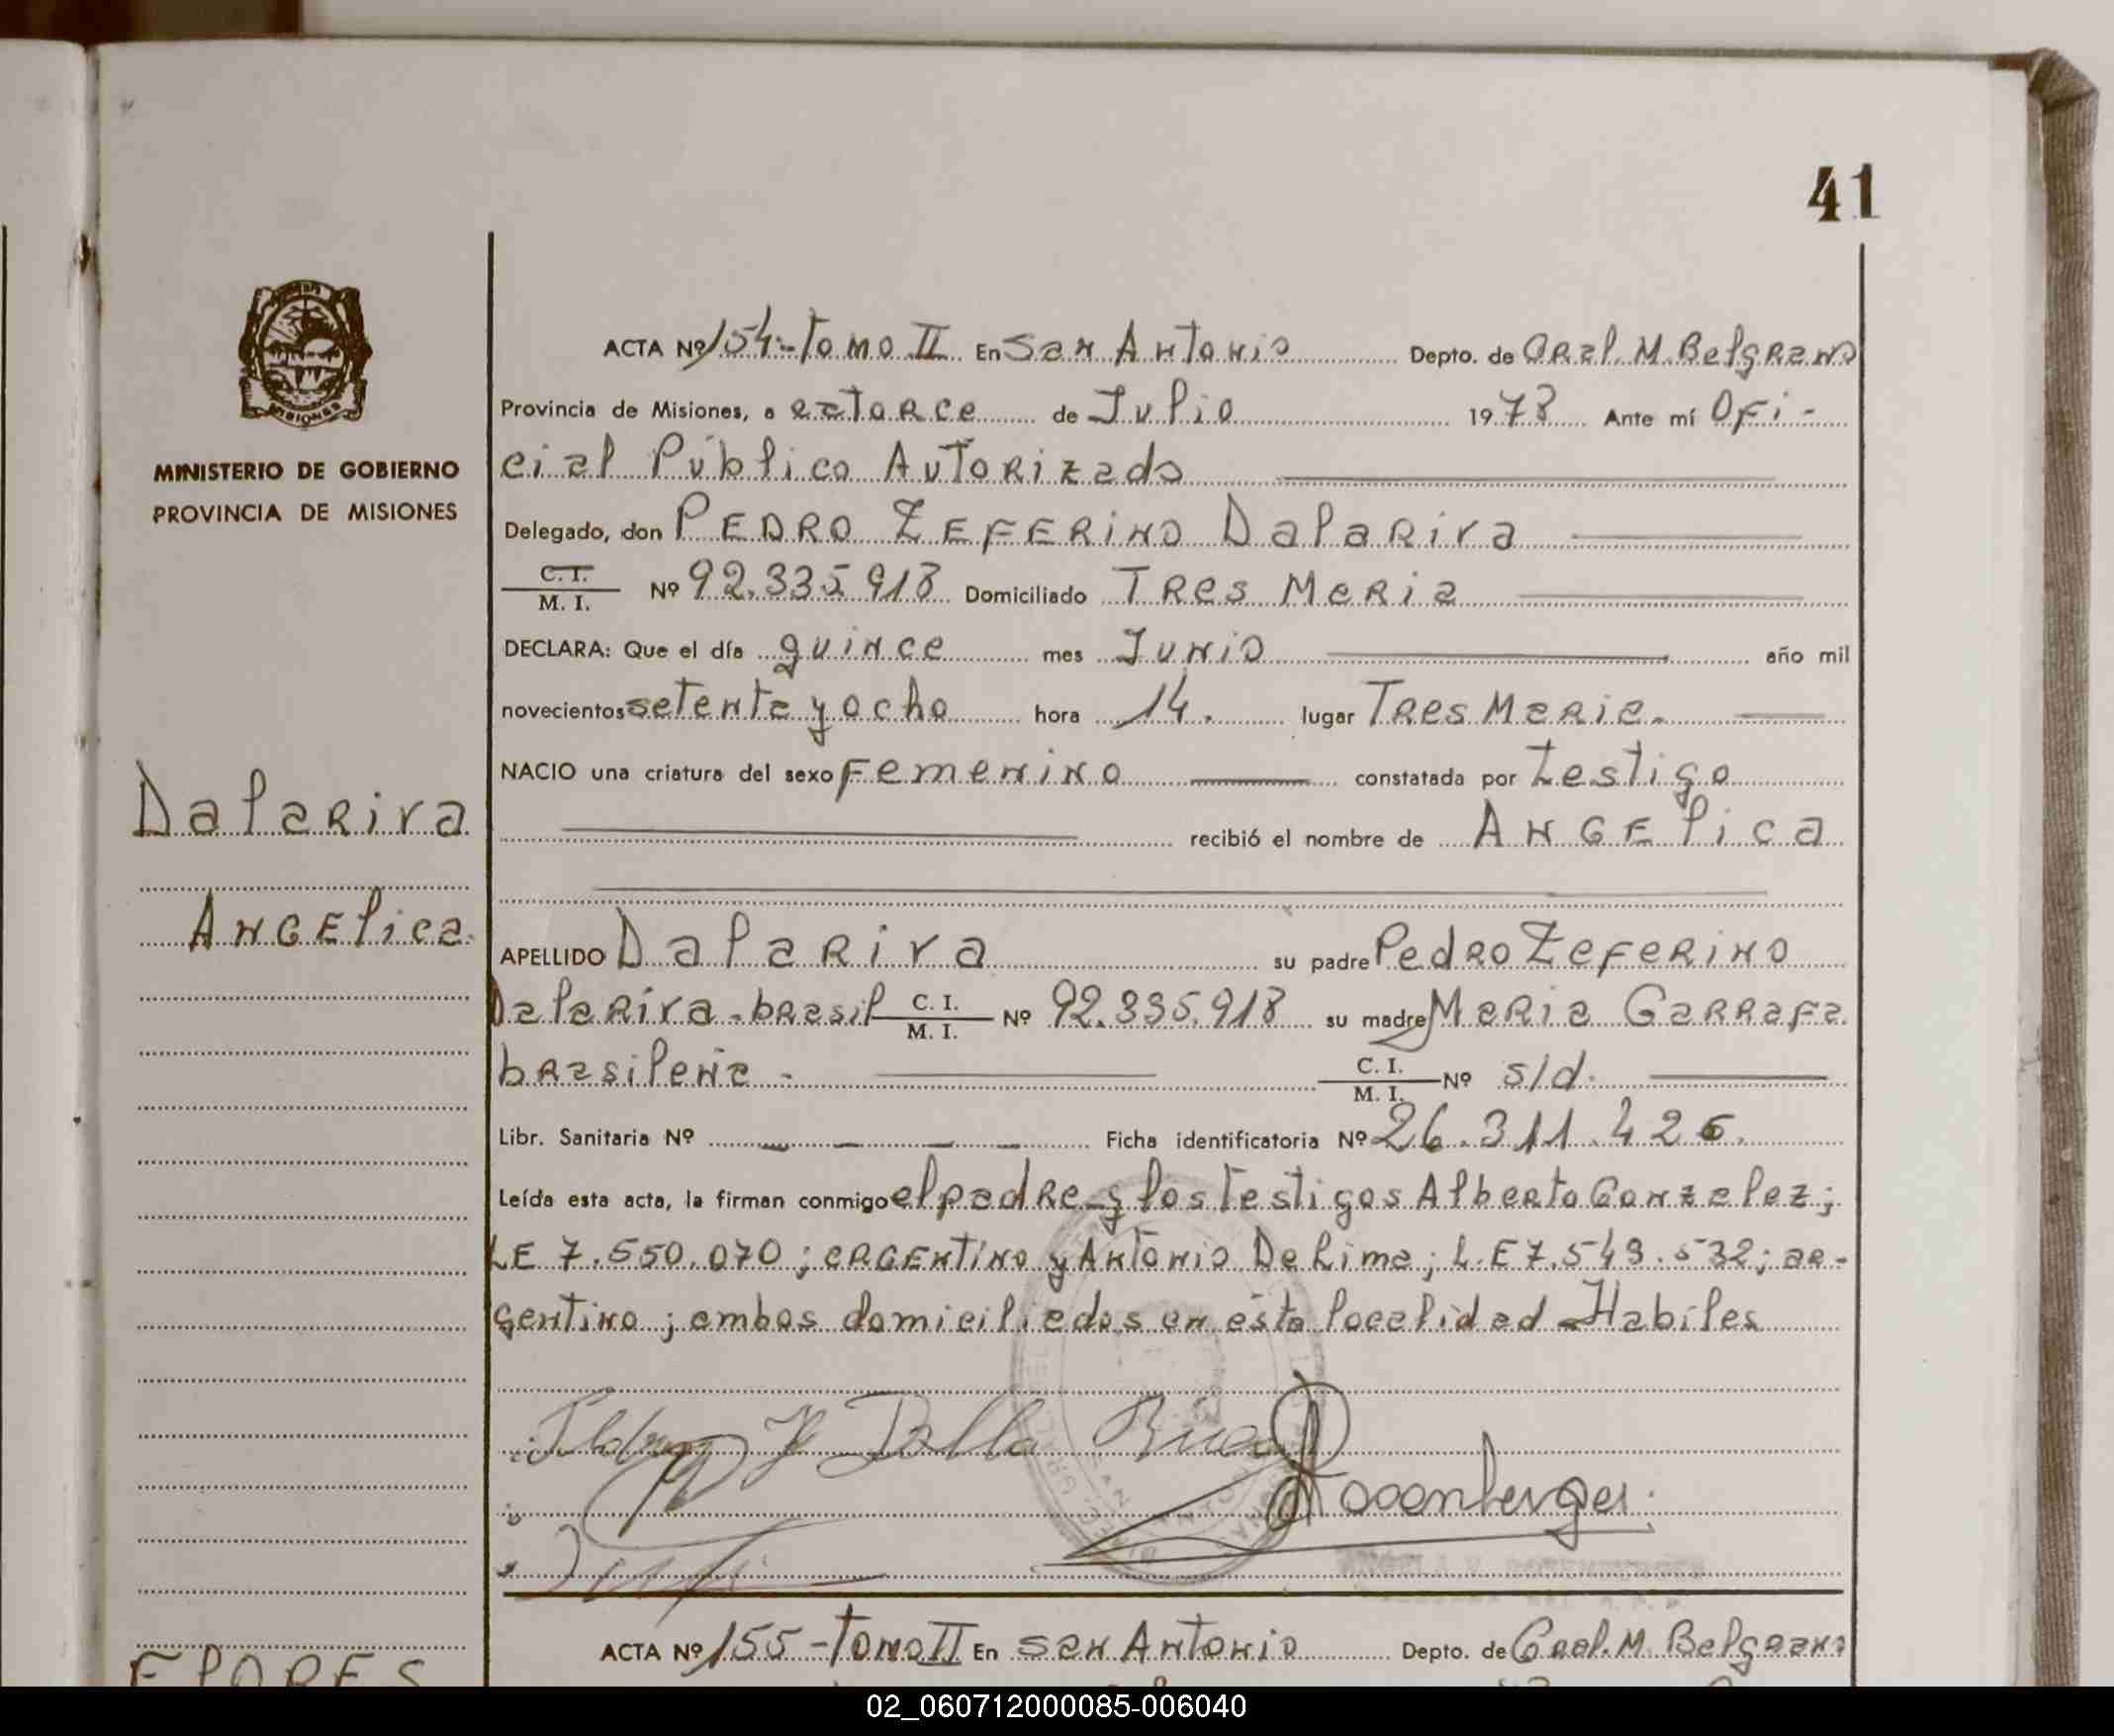 41
ACTA Nº 154-Tomo II En San Antonio Depto. de Gral. M. Belgrano
Provincia de Misiones, a catorce de Julio 1978 Ante mí Ofi-
cial Público Autorizado
MINISTERIO DE GOBIERNO
PROVINCIA DE MISIONES
Delegado, don PEDRO ZEFERINO Dalariva
C. I. / M. I. Nº 92.335.918 Domiciliado Tres Maria
DECLARA: Que el día quince mes Junio año mil
novecientos setenta y ocho hora 14. lugar Tres Maria.
NACIO una criatura del sexo Femenino constatada por Testigo
Dalariva
recibió el nombre de ANGElica
Angelica
APELLIDO Dalariva su padre Pedro Zeferino
Dalariva-brasil C. I. / M. I. Nº 92.335.918 su madre Maria Garrafa
brasileña - C. I. / M. I. Nº s/d.
Libr. Sanitaria Nº - - - - Ficha identificatoria Nº 26.311.426.
Leída esta acta, la firman conmigo el padre y los testigos Alberto Gonzalez;
LE 7.550.070; argentino y Antonio De Lima; L.E 7.549.532; ar-
gentino; ambos domiciliados en ésta localidad - Habiles
Dalla Riva
ACTA Nº 155-Tomo II En San Antonio Depto. de Gral. M. Belgrano
FLORES
02_060712000085-006040